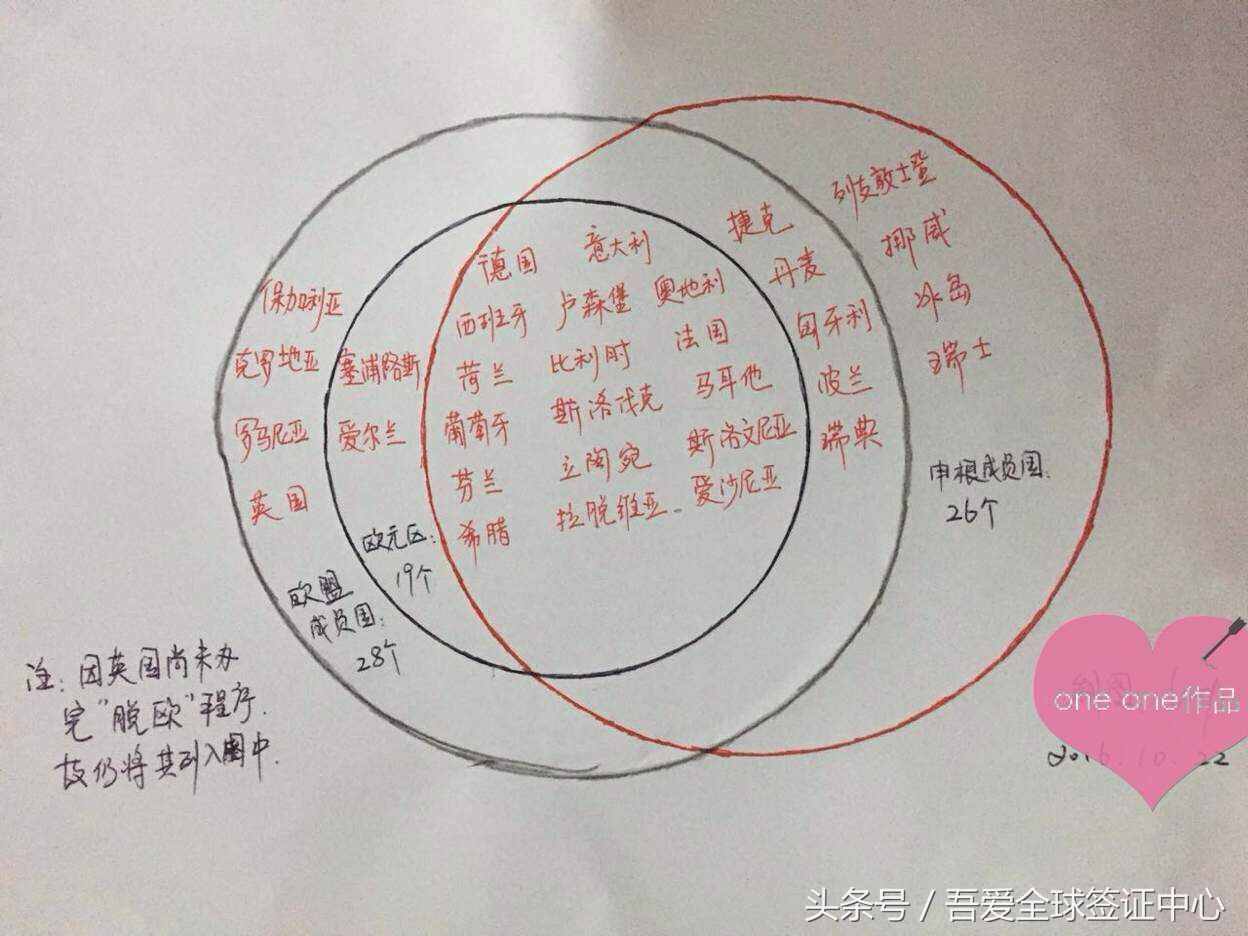 列支敦士登
挪威
冰岛
瑞士
捷克
丹麦
匈牙利
波兰
瑞典
德国 意大利
西班牙 卢森堡 奥地利
荷兰 比利时 法国
葡萄牙 斯洛伐克 马耳他
芬兰 立陶宛 斯洛文尼亚
希腊 拉脱维亚 爱沙尼亚
保加利亚
克罗地亚 塞浦路斯
罗马尼亚 爱尔兰
英国
欧元区:
19个
欧盟
成员国:
28个
申根成员国:
26个
注:因英国尚未办
完"脱欧"程序.
故仍将其列入图中.
one one作品
2016.10.22
头条号/吾爱全球签证中心